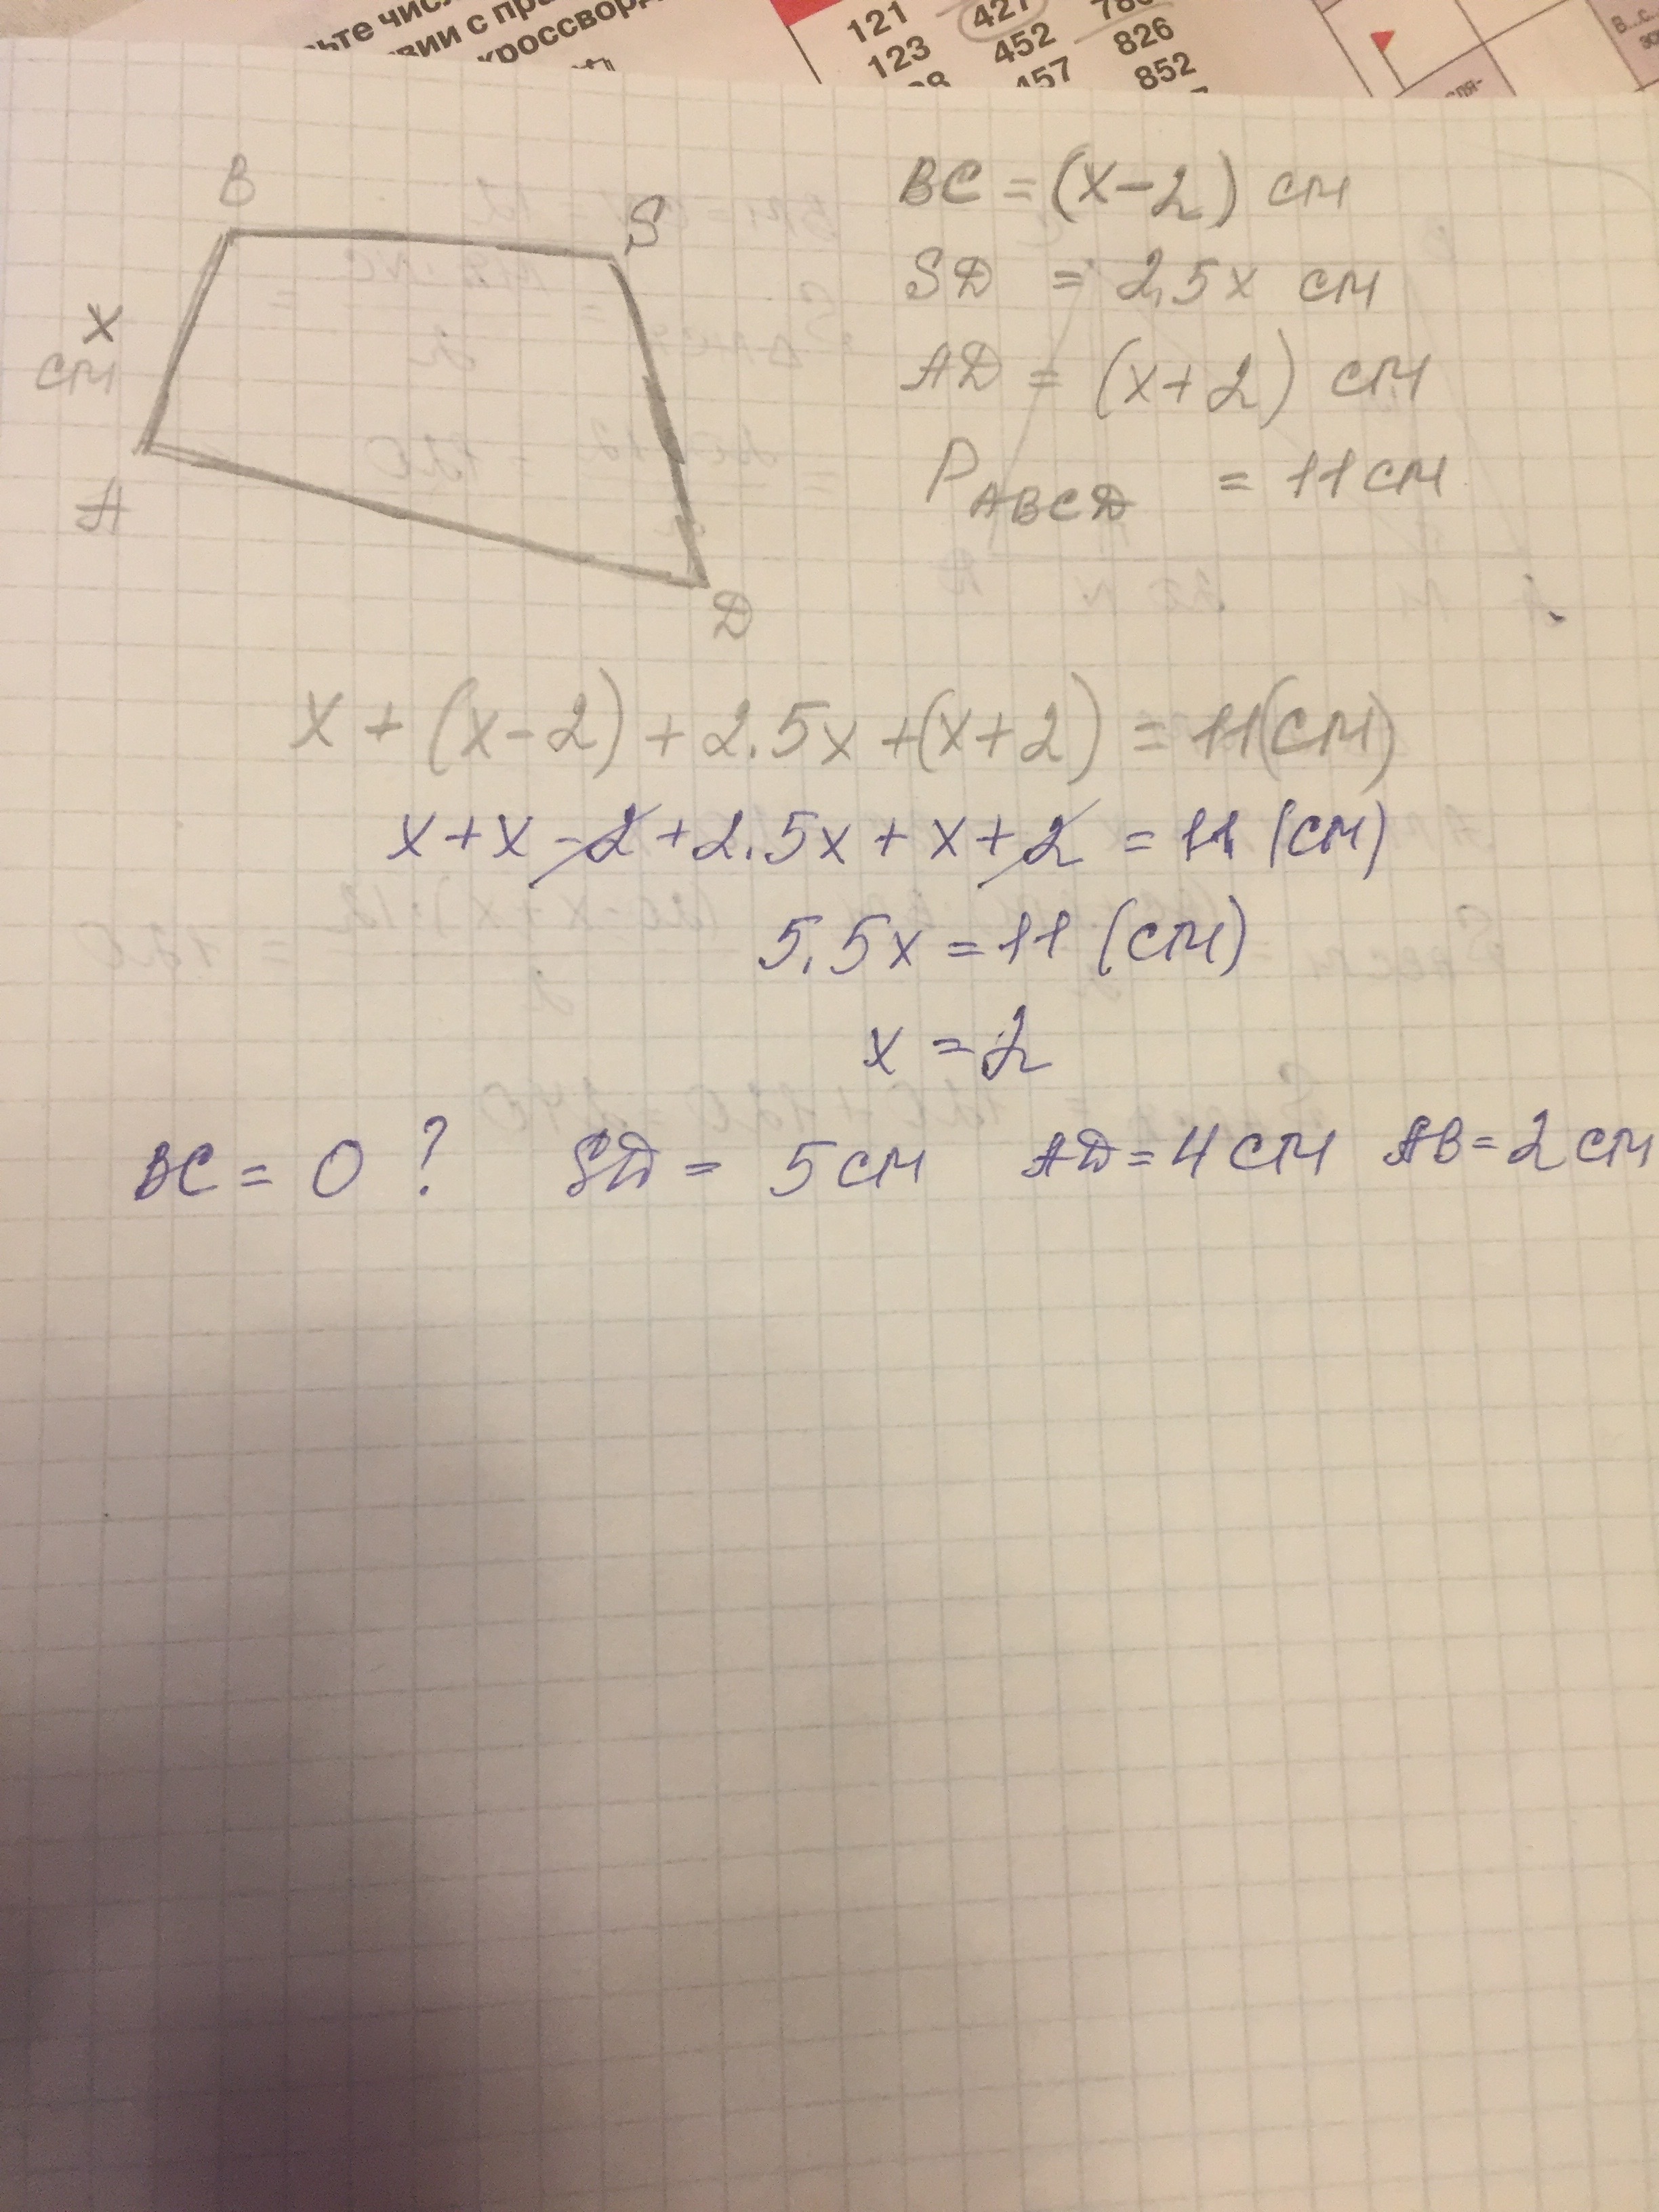 ьте чис
вии с пра
кроссворд
121 427 786
123 452 826
457 852
В...с.
B
S
x
см
A
D
BC = (x-2) см
SD = 2,5x см
AD = (x+2) см
P ABCD = 11 см
x + (x-2) + 2.5x + (x+2) = 11 (см)
x + x - 2 + 2.5x + x + 2 = 11 (см)
5.5x = 11 (см)
x = 2
BC = 0 ? SD = 5 см AD = 4 см AB = 2 см